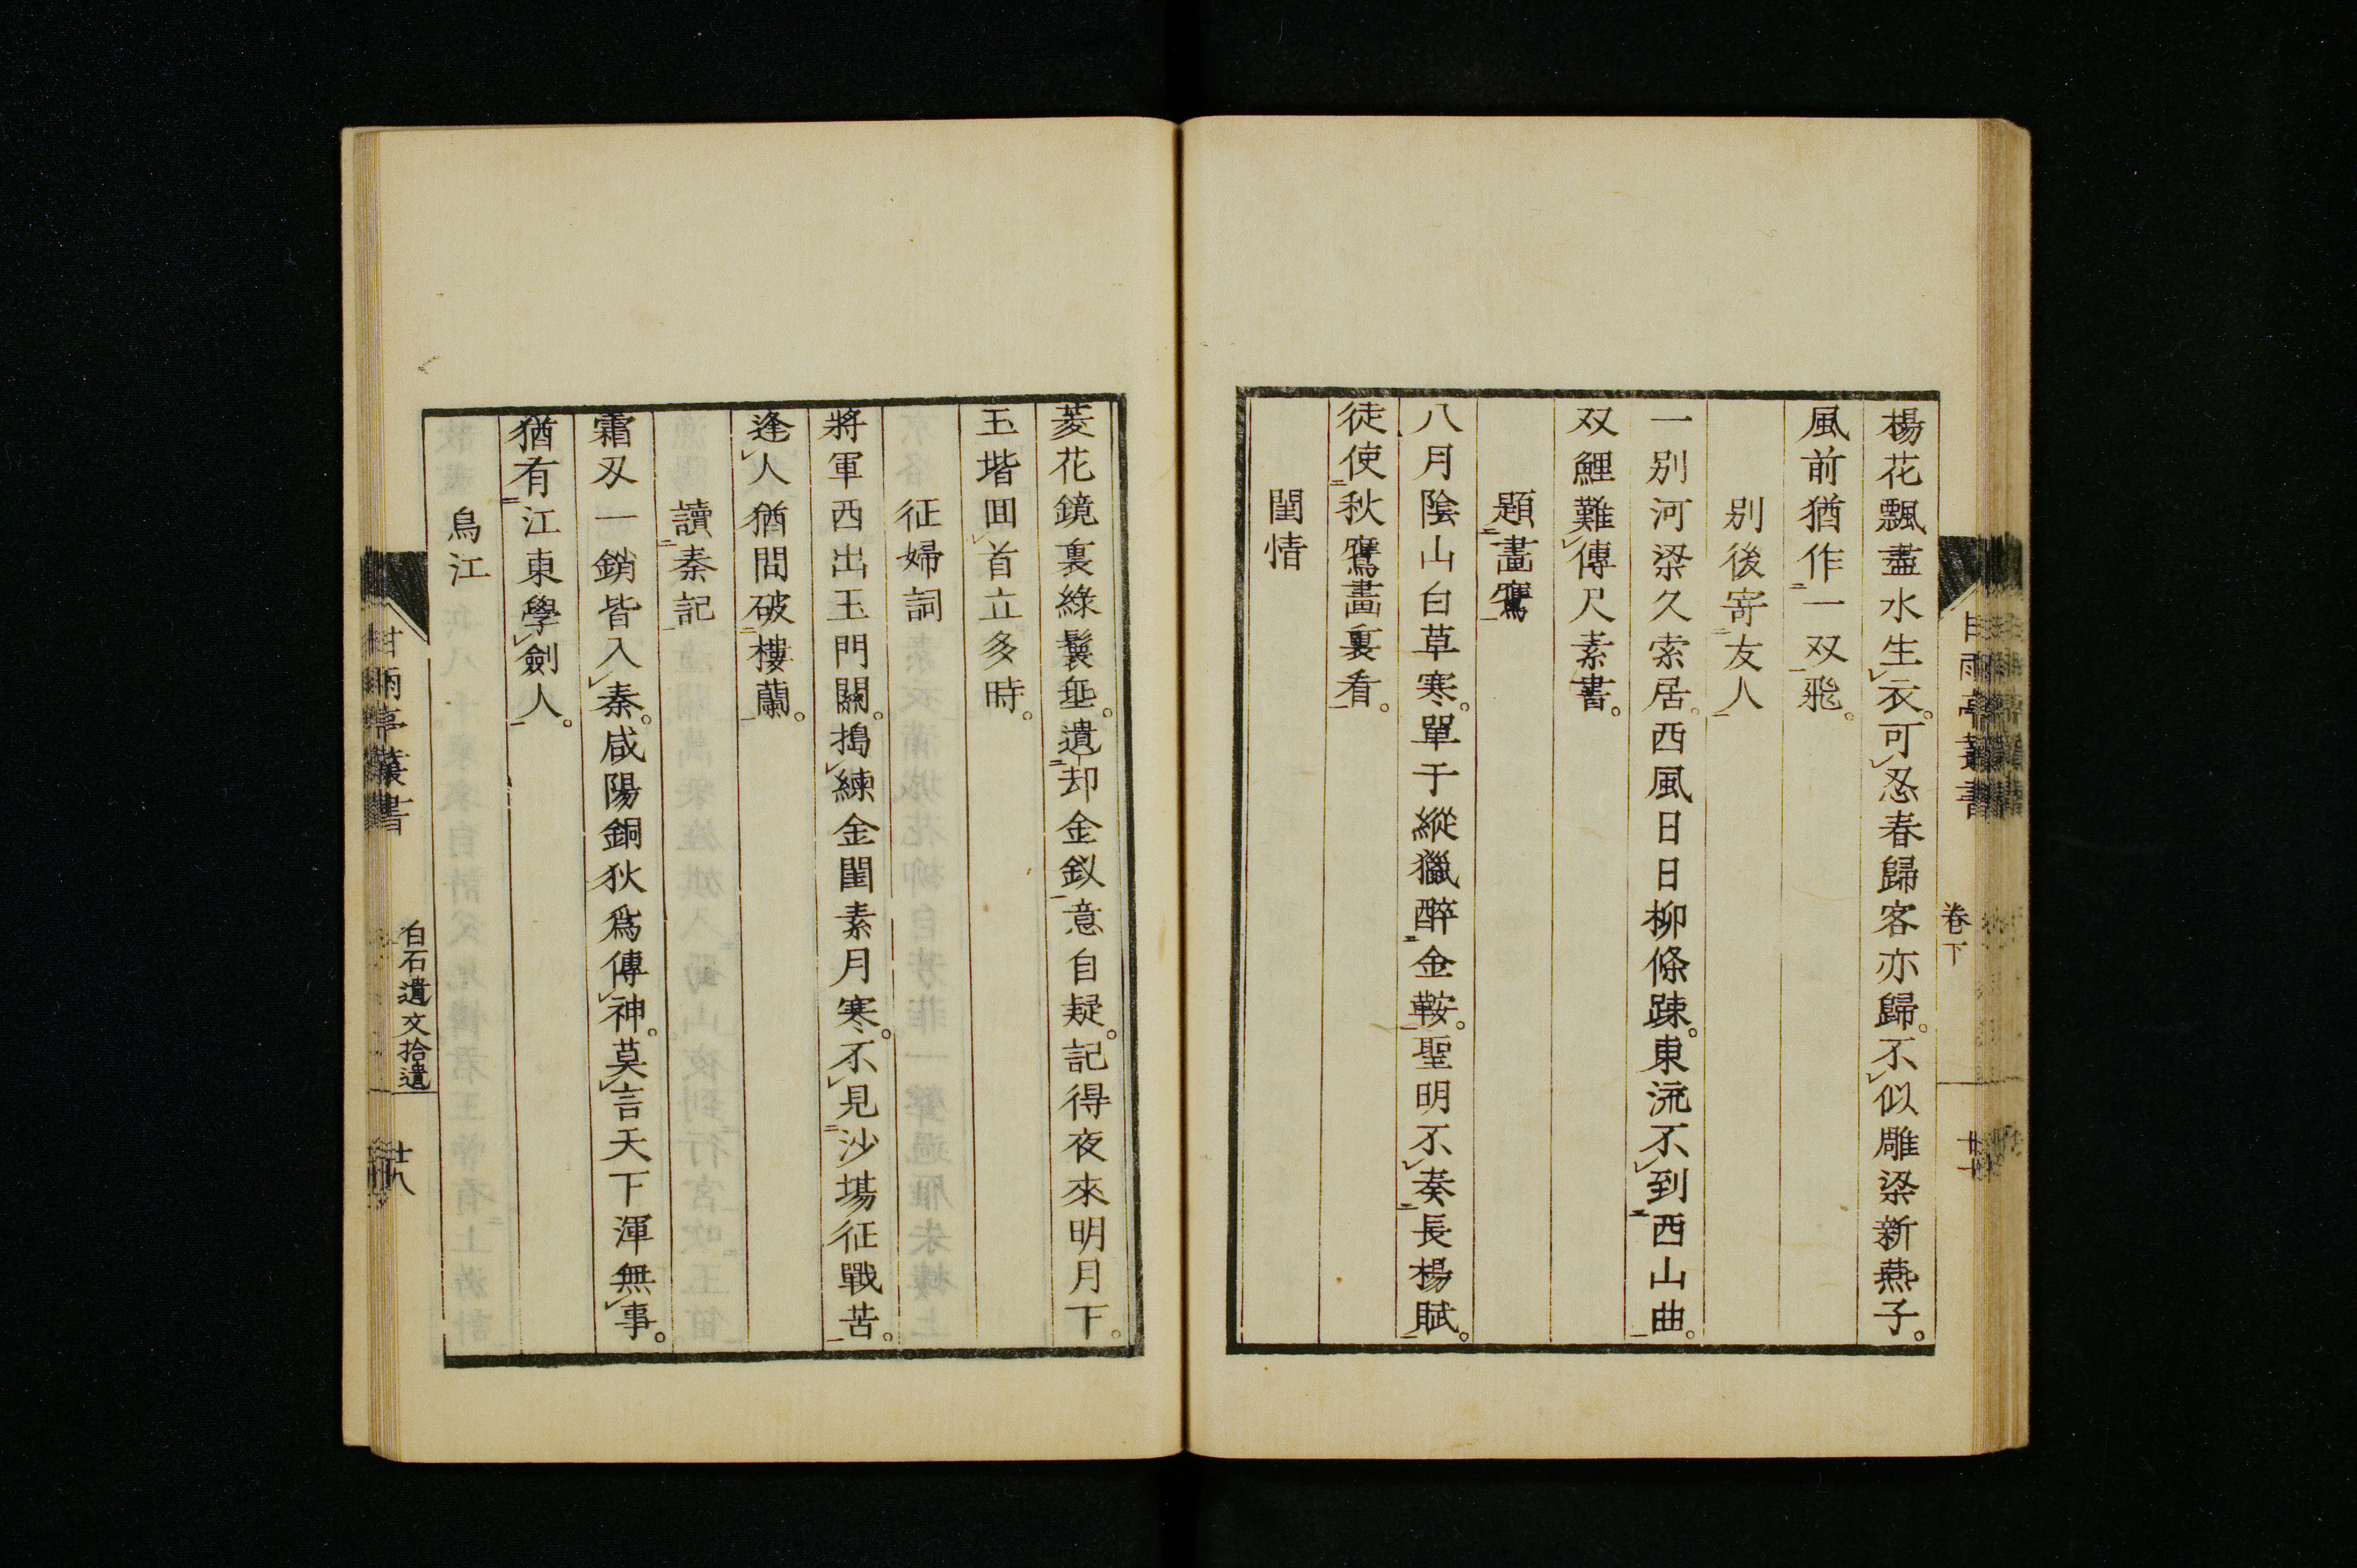 楊花飄盡水生衣。可忍春歸客亦歸。不似雕梁新燕子。
風前猶作一双飛。
別後寄友人
一別河梁久索居。西風日日柳條踈。東流不到西山曲。
双鯉難傳尺素書。
題畫鷹
八月陰山白草寒。單于縱獵醉金鞍。聖明不奏長楊賦。
徒使秋鷹畫裏看。
閨情
卷下
菱花鏡裏綠鬟埀。遺却金釵意自疑。記得夜來明月下。
玉堦囬首立多時。
征婦詞
將軍西出玉門關。搗練金閨素月寒。不見沙場征戰苦。
逢人猶問破樓蘭。
讀秦記
霜刄一銷皆入秦。咸陽銅狄爲傳神。莫言天下渾無事。
猶有江東學劍人。
烏江
甘雨亭叢書
白石遺文拾遺